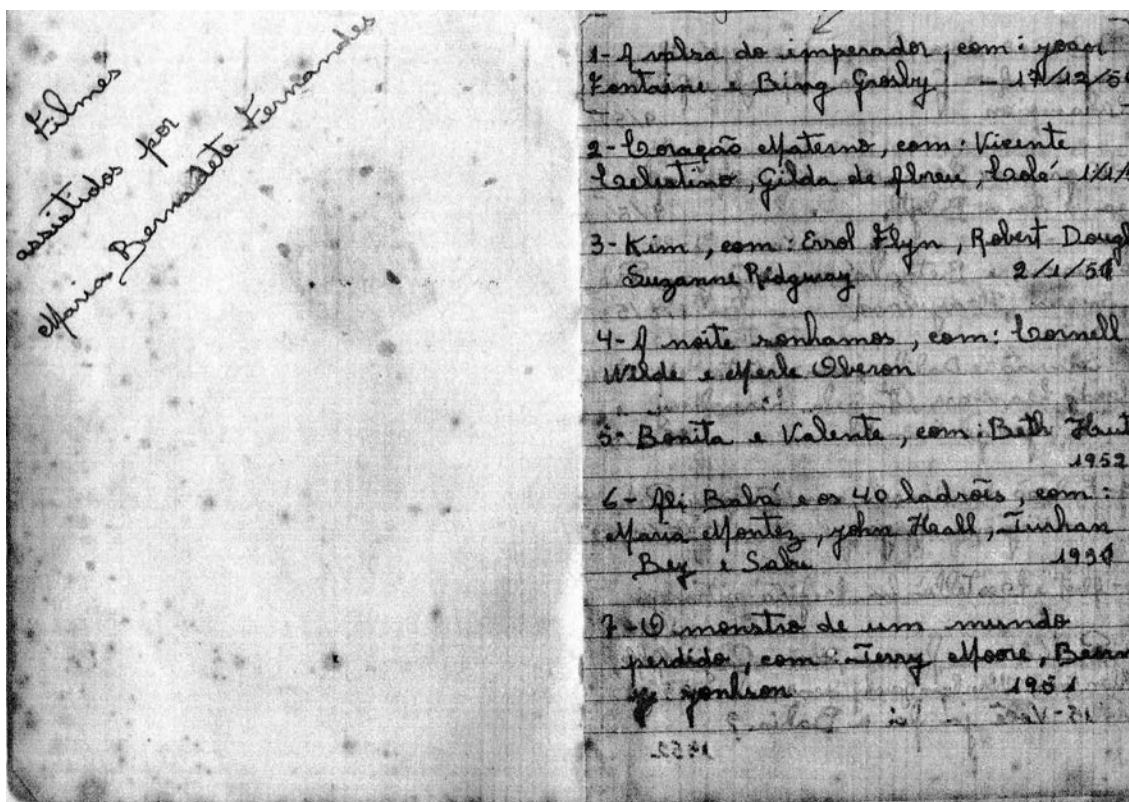 Filmes
assistidos por
Maria Bernadete Fernandes
1- A valsa do imperador, com: yoan
Fontaine e Bing Grosby - 17/12/50
2- Coração Materno, com: Vicente
Celestino, Gilda de Abreu, Colé 1/1/5
3- Kim, com: Errol Flyn, Robert Dougl
Suzanne Ridgway 2/1/51
4- A noite sonhamos, com: Cornell
Wilde e Merle Oberon
5- Bonita e Valente, com: Beth Hut
1952
6- Ali Babá e os 40 ladrões, com:
Maria Montez, john Hall, Turhan
Bey e Sabu 1951
7- O monstro de um mundo
perdido, com: Terry Moore, Bean
y yonhson 1951